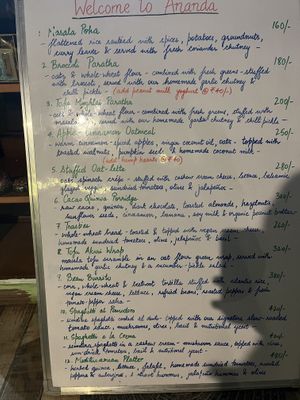 Welcome to Ananda
1. Masala Poha 160/-
- flattened rice sauteed with spices, potatoes, groundnuts, curry leaves & served with fresh coriander chutney -
2. Brocoli Paratha 180/-
- oats & whole-wheat flour - combined with fresh greens - stuffed with brocoli - served with our homemade garlic chutney & chilli pickle - (add peanut milk yoghurt @ ₹40/-)
3. Tofu Mughlai Paratha 200/-
- oats & whole-wheat flour - combined with fresh greens, stuffed with masala tofu - served with our homemade garlic chutney & chilli pickle -
4. Apple-Cinnamon Oatmeal 250/-
- warm cinnamon-spiced apples, ragi, coconut oil, oats - topped with toasted walnuts, pumpkin seeds & homemade coconut milk -
(add hemp hearts @ ₹40)
5. Stuffed Oat-lette 280/-
- oats, spinach crêpe - stuffed with cashew cream cheese, balsamic
sundried tomatoes, olives & jalapeños -
6. Cacao Quinoa Porridge 320/-
- raw cacao, quinoa, dark chocolate, toasted almonds, hazelnuts, sunflower seeds, cinnamon, banana, soy milk & organic peanut butter
7. Toasties
- whole-wheat bread - toasted & topped with vegan cream cheese, homemade sundried tomatoes, olives, jalapeño & basil -
8. Tofu Akuri Wrap
- masala tofu scramble in an oat flour green wrap, served with homemade garlic chutney & a cucumber-pickle salad -
9. Bean Burrito 380/-
- corn, whole-wheat & beetroot tortilla stuffed with rice, vegan cream cheese, lettuce, refried beans, roasted peppers & tomato-pepper salsa -
10. Spaghetti al Pomodoro
- spaghetti cooked al dente - topped with our signature slow-roasted tomato sauce, mushrooms, olives, basil & nutritional yeast -
11. Spaghetti a la Crema
- spaghetti in a cashew cream - mushroom sauce, topped with olives, sun-dried tomatoes, basil & nutritional yeast -
12. Mediterranean Platter
quinoa, lettuce, falafel, homemade sundried tomatoes,
peppers & aubergine, hummus, jalapeño hummus & olives